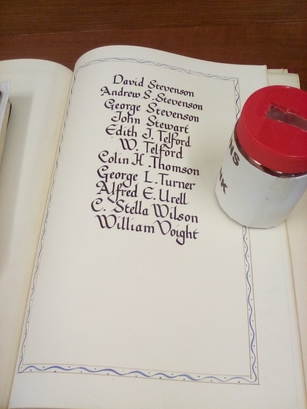 David Stevenson
Andrew S. Stevenson
George Stevenson
John Stewart
Edith J. Telford
W. Telford
Colin H. Thomson
George L. Turner
Alfred E. Urell
C. Stella Wilson
William Voight